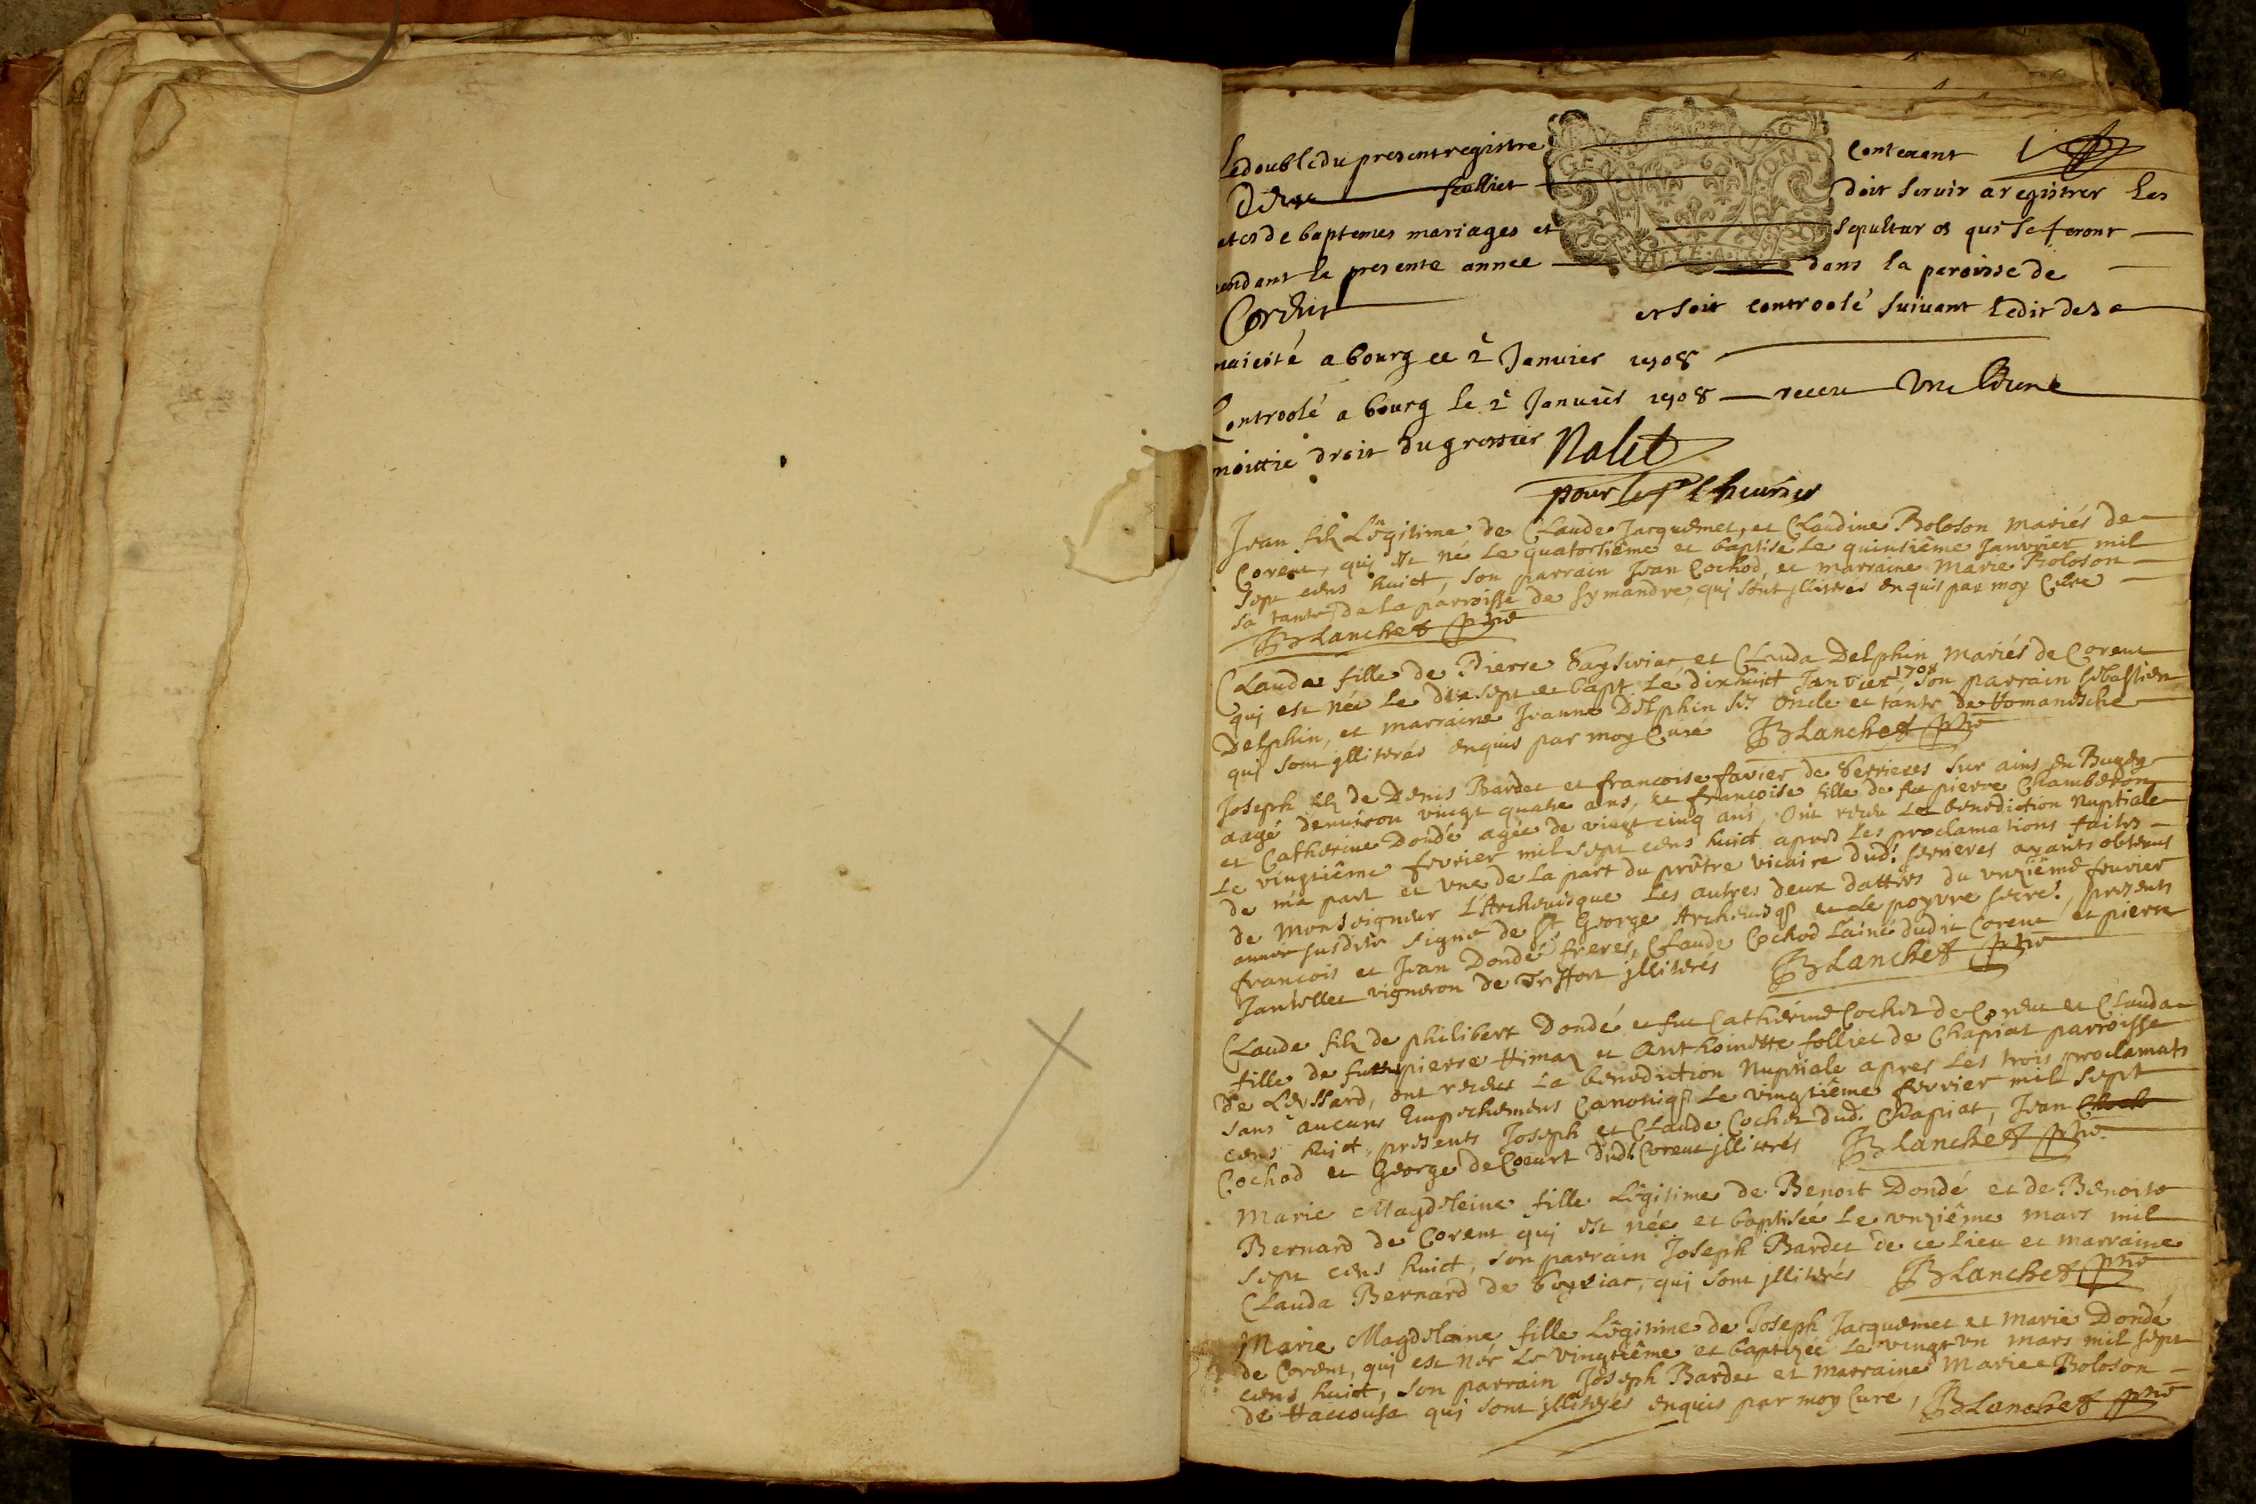 Le double du present registre contenant
Deux feulliet doit servir a registrer les
actes de baptemes mariages et sepultures qui se feront
pendant la presente annee dans la paroisse de
Corent et soit controolé suivant ledit de sa
majesté a bourg ce 2e Janvier 1708
Controolé a bourg le 2e Janvier 1708 receu une livre
moittie droit du greffier Nalet
pour le Sr
Jean filz Légitime de Claude Jacquemet, et Claudine Boloson mariés de
Corent, qui est né le quatorsiême et baptisé le quinsiême Janvrier mil
sept cens huict, son parrain Jean Cochod, et marraine Marie Boloson
sa tante de la parroisse de Symandre, qui sont jlliterés enquis par moy Curé
Blanchet ptre
Clauda fille de Pierre et Clauda Delphin mariés de Corent
qui est née le dixsept et bapt. le dixhuict Janvier 1708 son parrain Sébastien
Delphin, et marraine Jeanne Delphin ses oncle et tante de Romanesche
qui sont jlliterés enquis par moy Curé Blanchet ptre
Joseph filz de Denis Bardet et francoise favier de Serrieres sur ains en Bugey
aagé denviron vingt quatre ans, et francoise fille de fut pierre Chamberon
et Catherine Dondé agée de vingt cinq ans, Ont receu la benediction Nuptiale
Le vingtiême fevrier mil sept cens huict aprés les proclamations faites
de ma part et une de la part du prêtre vicaire dud. Serrieres ayants obtenus
de Monseigneur L'Archevêque les autres deux dattées du unziême fevrier
année susdite signé de St George Archevesq et de poyvre secre., presents
francois et Jean Dondé freres, Claude Cochod Lainé dudit Corent et pierre
Jantellet vigneron de Treffort jlliterés Blanchet ptre
Claude filz de philibert Dondé et fut Catherine Cochet de Corent et Clauda
fille de fut pierre et Anthoinette folliet de Chapiat parroisse
de , ont receu la benediction Nuptiale apres les trois proclamats
sans aucuns Empechemens Canoniq le vingtiême fevrier mil sept
cens huict, présents Joseph et Claude Cochet dud. Chapiat, Jean
Cochod et George de Coeurt dud. Corent jlliterés Blanchet ptre
Marie Magdeleine fille Légitime de Benoit Dondé et de Benoite
Bernard de Corent qui est née et baptisée le unziême mars mil
sept cens huict, son parrain Joseph Bardet de ce lieu et marraine
Clauda Bernard de , qui sont jlliterés Blanchet ptre
Marie Magdeleine fille Légitime de Joseph Jacquemet et Marie Dondé
de Corent, qui est née le vingtiême et baptizée le vingt un mars mil sept
cens huict, son parrain Joseph Bardet et marraine Marie Boloson
de qui sont jlliterés enquis par moy Curé, Blanchet ptre